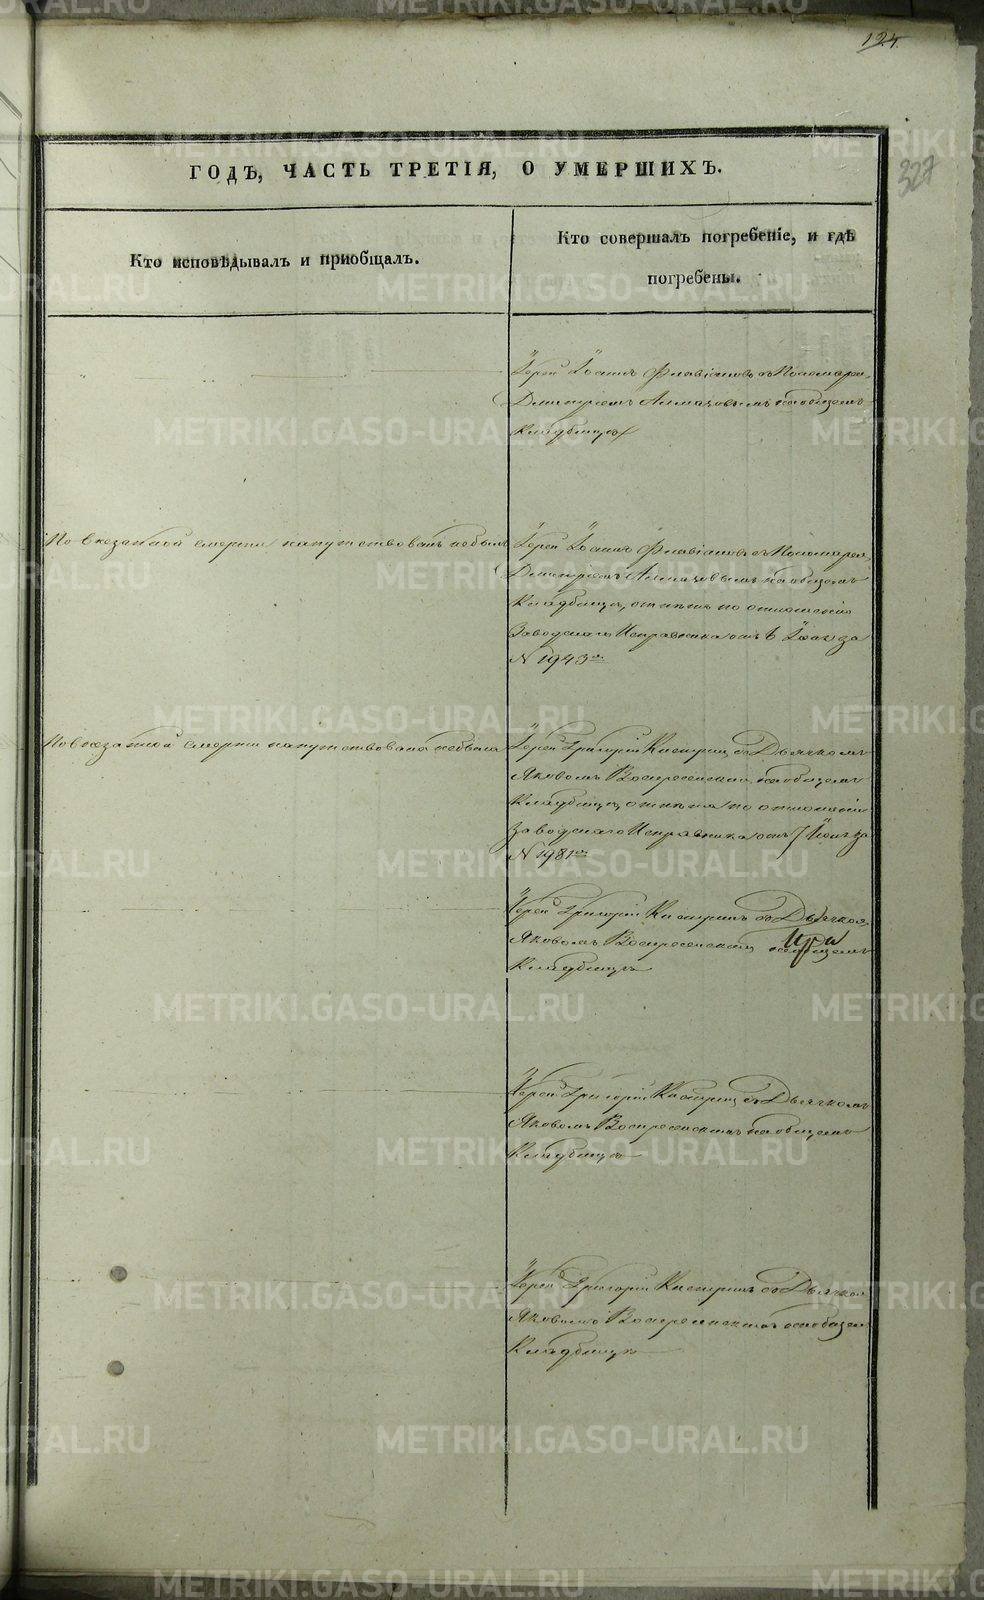 124.
327
ГОДЪ, ЧАСТЬ ТРЕТІЯ, О УМЕРШИХЪ.
Кто исповѣдывалъ и приобщалъ.
Кто совершалъ погребеніе, и гдѣ
погребены.
Іерей Іоаннъ Флавіановъ съ Пономаремъ
Дмитріемъ на общемъ
Кладбищѣ
По внезапной смерти напутствованъ небылъ
Іерей Іоаннъ Флавіановъ съ Пономаремъ
Дмитріемъ на общемъ
Кладбищѣ, отпѣтъ по отношенію
Заводскаго Исправника отъ 6 за
№ 1943
По внезапной смерти напутствована небыла
Іерей Григорій съ Дьячкомъ
Яковомъ Воскресенскимъ на общемъ
Кладбищѣ отпѣта по отношенію
Заводскаго Исправника отъ 7 за
№ 1981
Іерей Григорій съ Дьячкомъ
Яковомъ Воскресенскимъ на общемъ
Кладбищѣ
Іерей Григорій съ Дьячкомъ
Яковомъ Воскресенскимъ на общемъ
Кладбищѣ
Іерей Григорій съ Дьячкомъ
Яковомъ Воскресенскимъ на общемъ
Кладбищѣ
METRIKI.GASO-URAL.RU